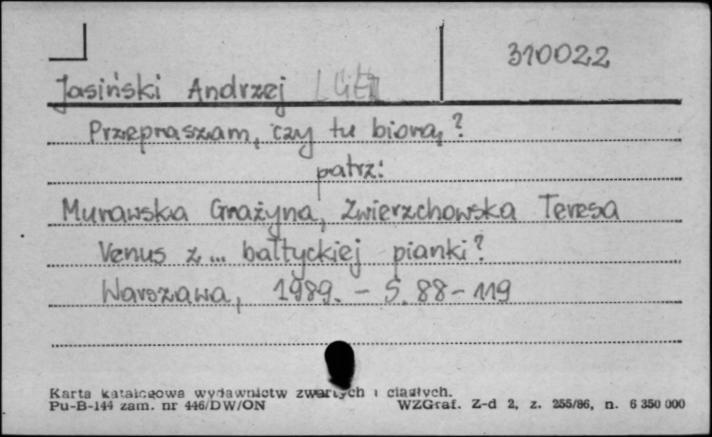 310022
Jasiński Andrzej
Przepraszam, czy tu biorą?
patrz:
Murawska Grażyna, Zwierzchowska Teresa
Venus z... bałtyckiej pianki?
Warszawa, 1989. - S. 88-119
Karta katalogowa wydawnictw zwartych i ciągłych.
Pu-B-144 zam. nr 446/DW/ON WZGraf. Z-d 2, z. 255/86, n. 6 350 000